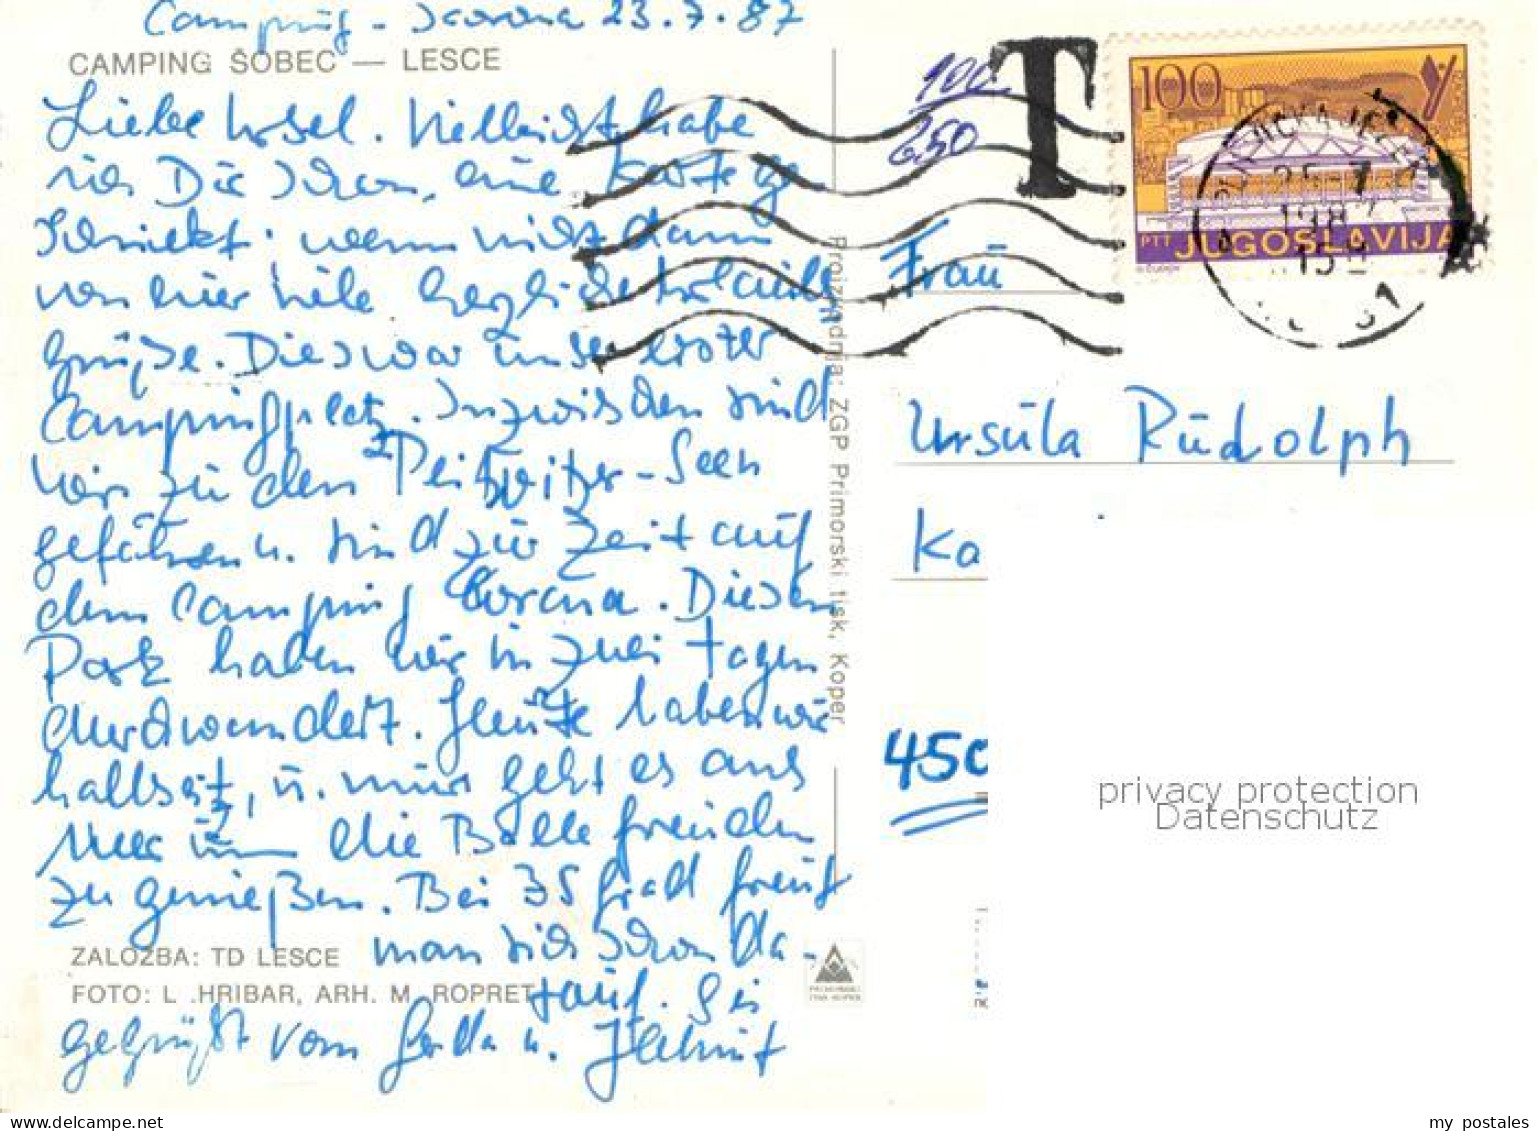 Camping - Korona 23.7.87
CAMPING ŠOBEC — LESCE
Liebe Ursel. Vielleicht habe
ich Dir schon eine Karte ge
schickt. wenn nicht dann
von hier viele herzliche Urlaubs
grüße. Dies war unser erster
Campingplatz. Inzwischen sind
wir zu den Plitvitzer-Seen
gefahren u. sind zur Zeit auf
dem Camping Corana. Diesen
Park haben wir in zwei Tagen
durchwandert. Heute haben wir
halbzeit, u. nun geht es ans
Meer um die Badefreuden
zu genießen. Bei 35 Grad freut
man sich schon da-
rauf. Sei
gegrüßt von Gerda u. Helmut
ZALOŽBA: TD LESCE
FOTO: L .HRIBAR, ARH. M. ROPRET
Proizvodnja: ZGP Primorski tisk, Koper
100
650
T
100
PTT JUGOSLAVIJA
25-7
Frau
Ursula Rudolph
Ka
450
privacy protection
Datenschutz
my postales